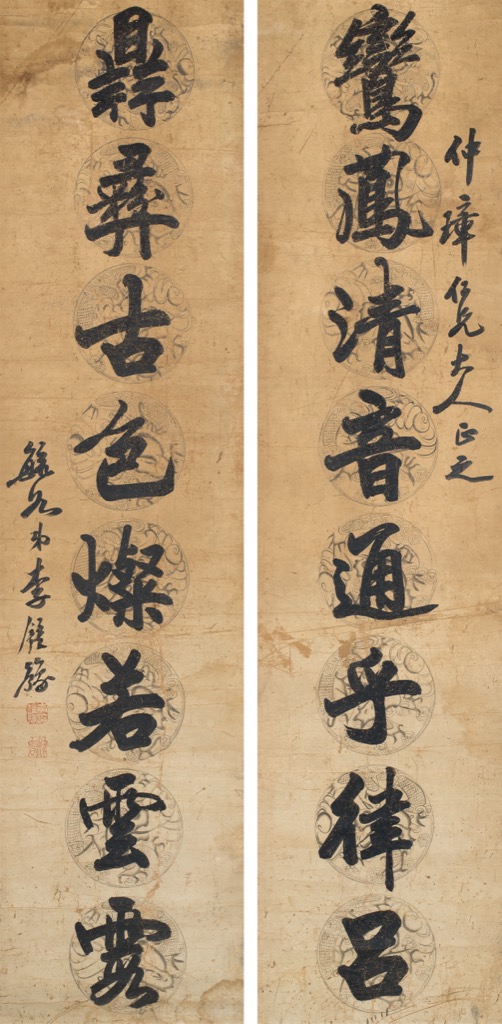 仲璋仁兄大人正之
鸞鳳清音通乎律呂
鼎彝古色燦若雲霞
毓如弟李鍾豫